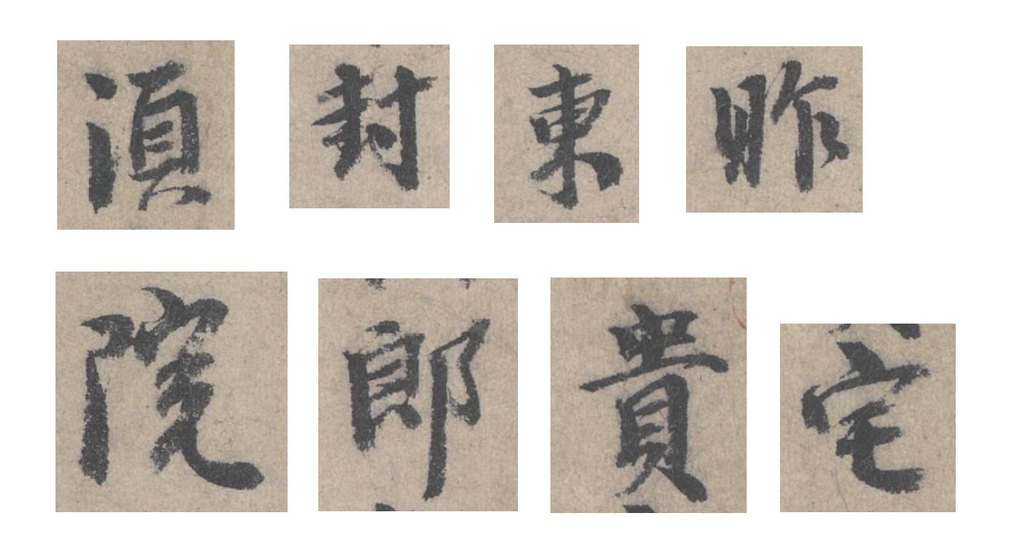 須封東昨
院郎貴宅